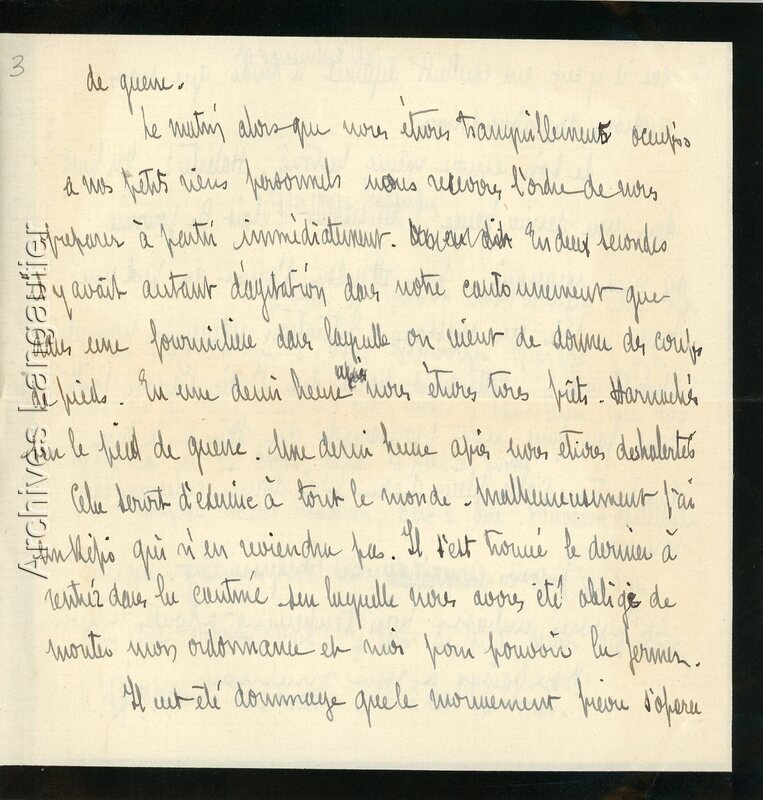 3
de guerre.
Le matin alors que nous étions tranquillement occupés
a nos petits riens personnels nous recevons l'ordre de nous
préparer à partir immédiatement. En deux secondes
il y avait autant d'agitation dans notre cantonnement que
dans une fourmilière dans laquelle on vient de donner des coups
de pieds. En une demi heure après nous étions tous prêts. Harnachés
sur le pied de guerre. Une demi heure après nous étions désalertés
Cela servit d'exercice à tout le monde. Malheureusement j'ai
un Képi qui n'en reviendra pas. Il s'est trouvé le dernier à
rentrer dans la cantine sur laquelle nous avons été obligés de
monter mon ordonnance et moi pour pouvoir la fermer.
Il eut été dommage que le mouvement prévu s'opéra
Archives Langautier